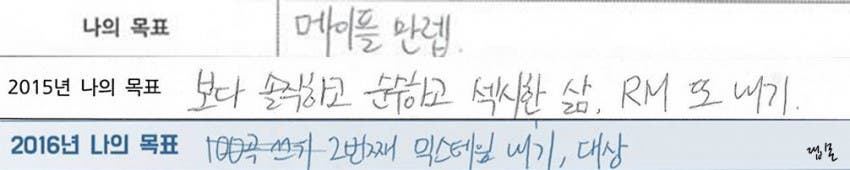 나의 목표 메이플 만렙.
2015년 나의 목표 보다 솔직하고 순수하고 섹시한 삶, RM 또 내기.
2016년 나의 목표 100곡 쓰기 2번째 믹스테잎 내기, 대상 랩몬